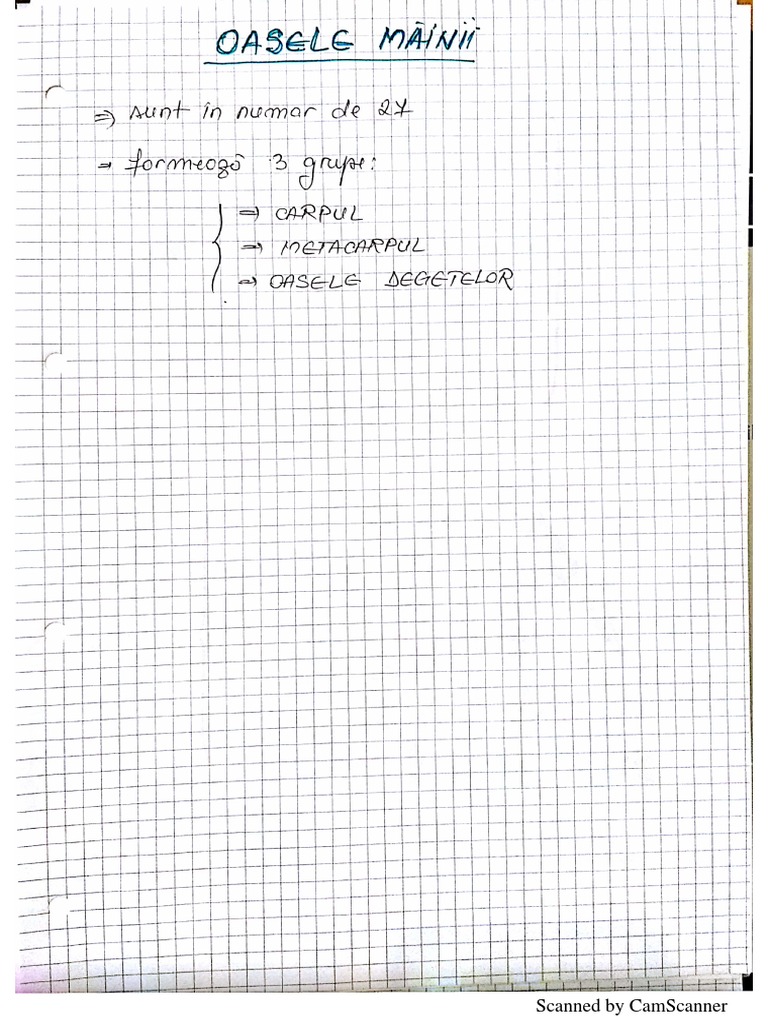 OASELE MÂINII
=> sunt în numar de 27
→ formează 3 grupe:
=> CARPUL
=> METACARPUL
=> OASELE DEGETELOR
Scanned by CamScanner